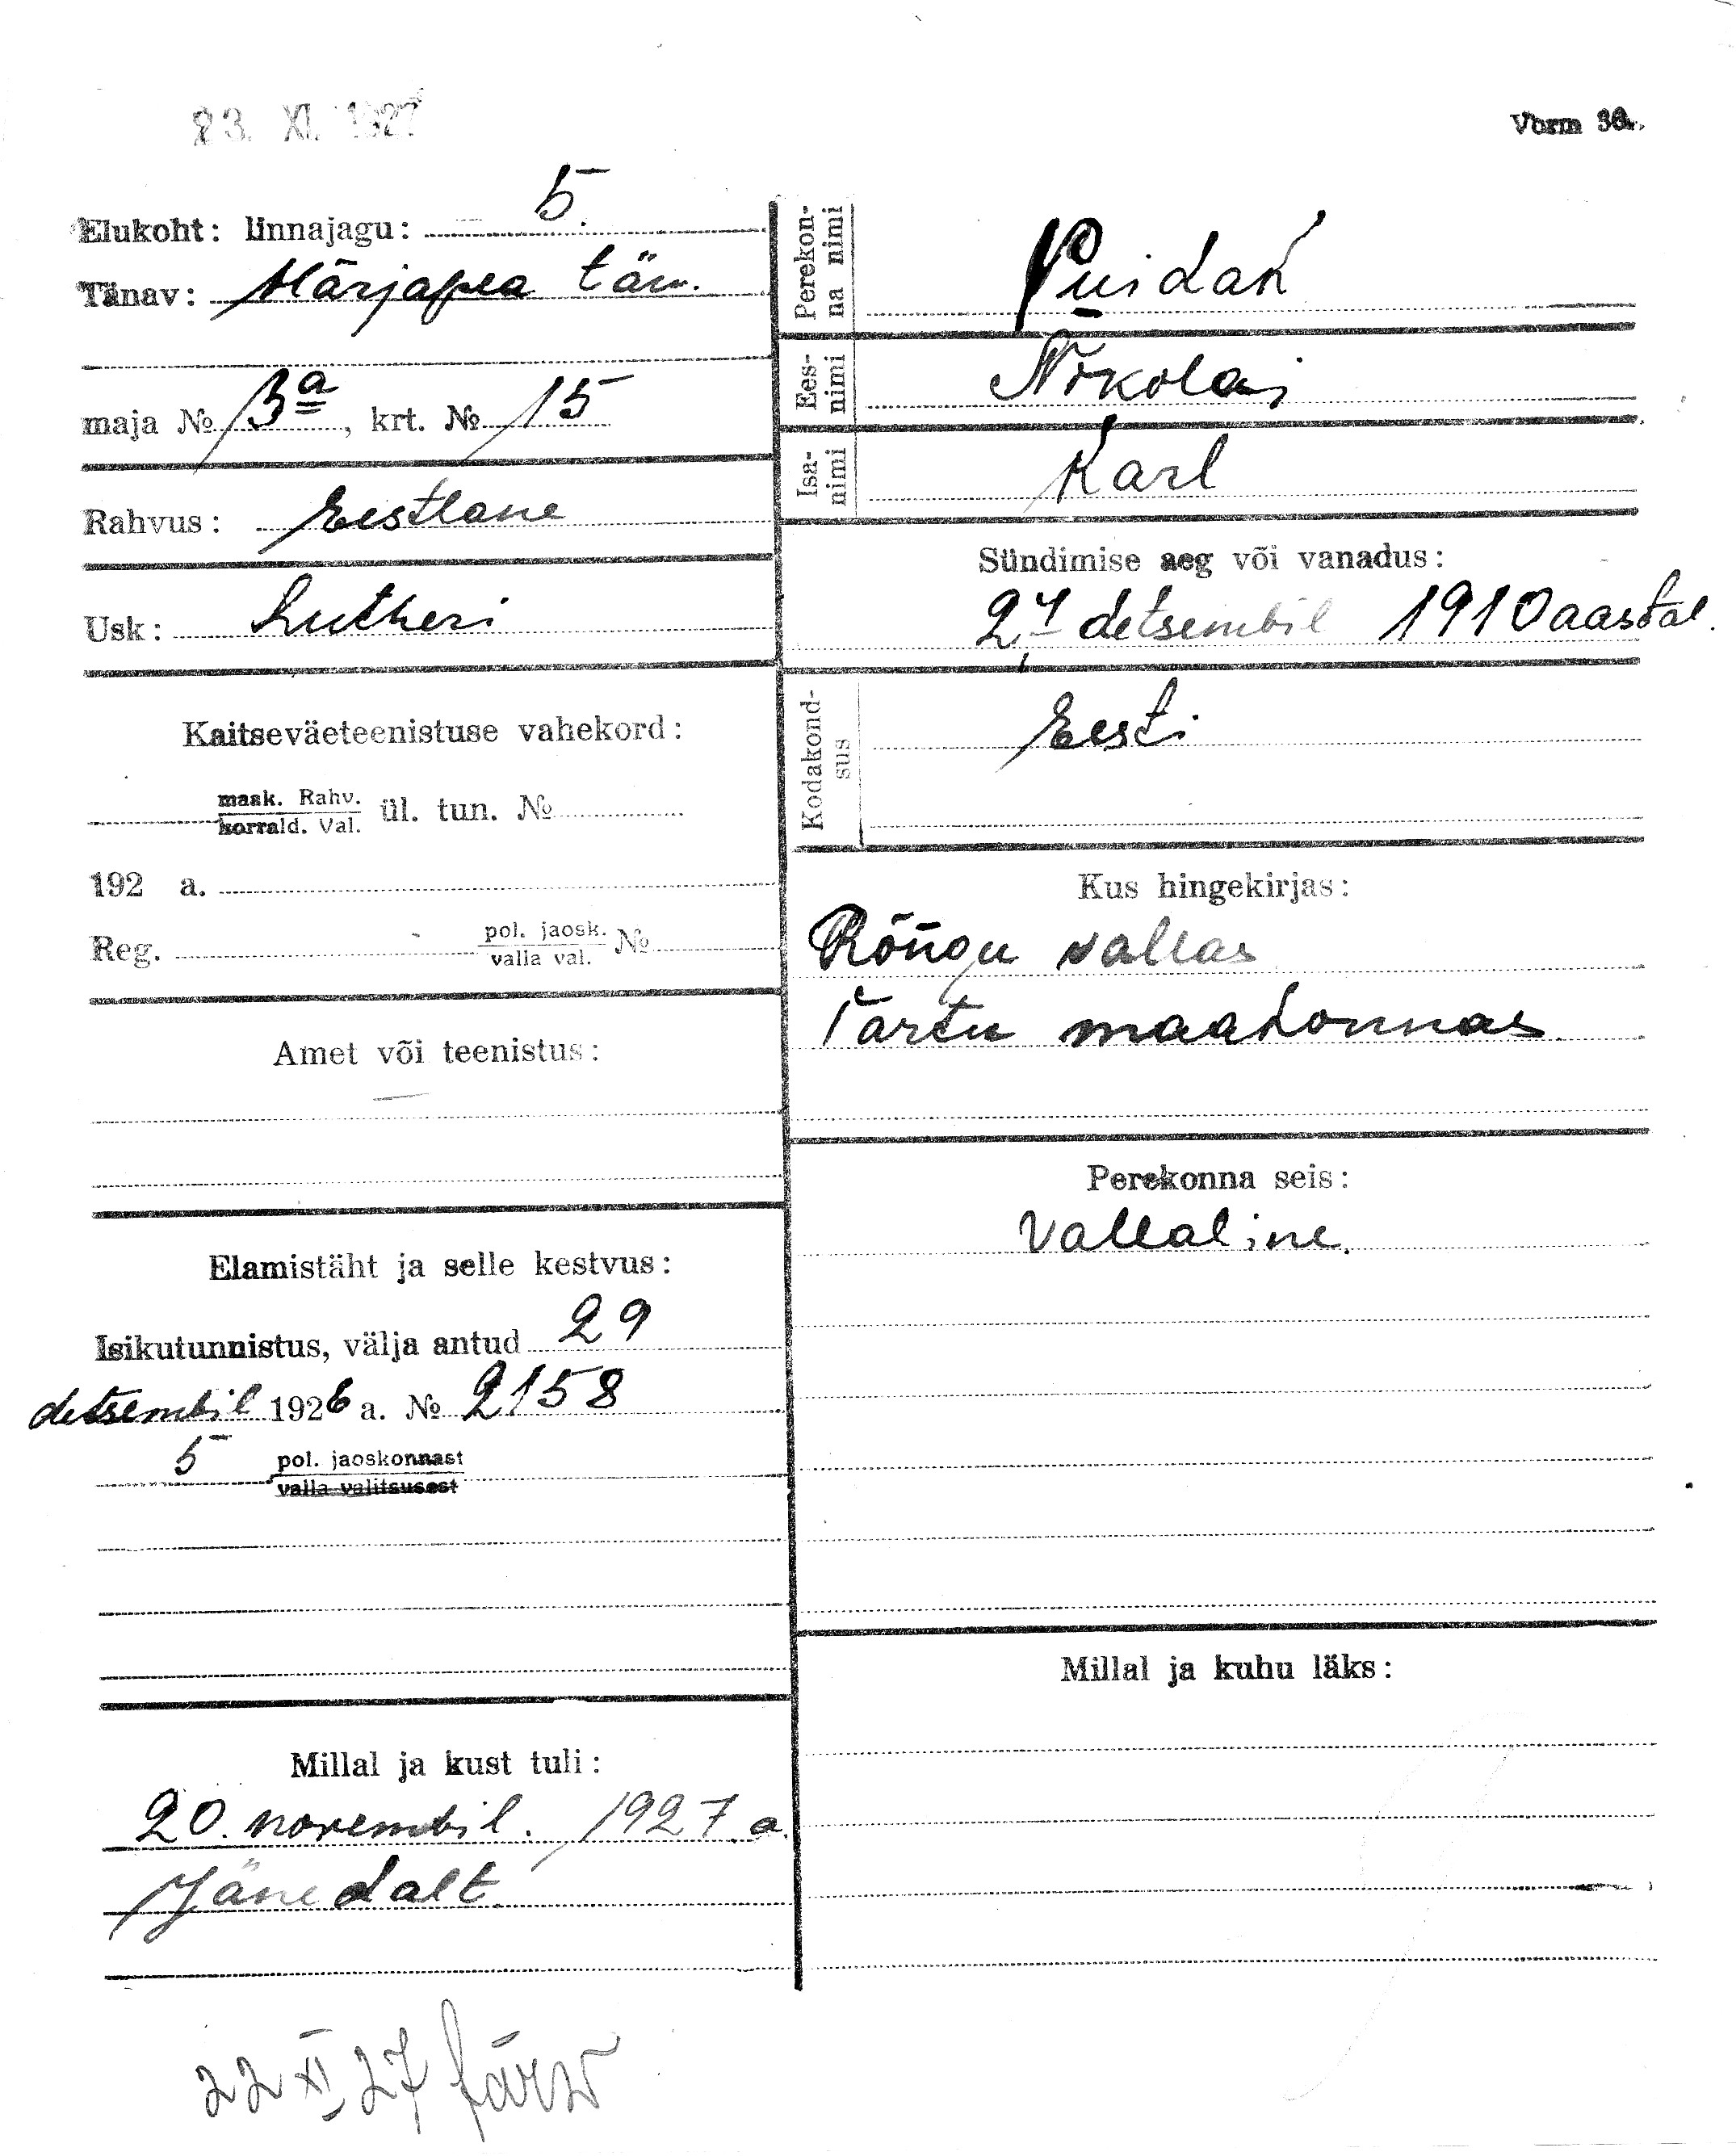 23. XI. 1927
Vorm 36.
Elukoht: linnajagu: 5.
Tänav: Härjapea tän.
maja № 3a, krt. № 15
Rahvus: Eestlane
Usk: Lutheri
Kaitseväeteenistuse vahekord:
mask. Rahv.
korrald. Val. ül. tun. №
192 a.
Reg. pol. jaosk. №
valla val.
Amet või teenistus:
—
Elamistäht ja selle kestvus:
Isikutunnistus, välja antud 29
detsembil 1926 a. № 2158
5 pol. jaoskonnast
valla valitsusest
Millal ja kust tuli:
20. novembil. 1927. a.
Jänedalt.
Perekon-
na nimi
Puidak
Ees-
nimi
Nikolai
Isa-
nimi
Karl
Sündimise aeg või vanadus:
27 detsembil 1910 aastal.
Kodakond-
sus
Eesti
Kus hingekirjas:
Rõngu vallas
Tartu maakonnas.
Perekonna seis:
Vallaline.
Millal ja kuhu läks:
22 XI 27